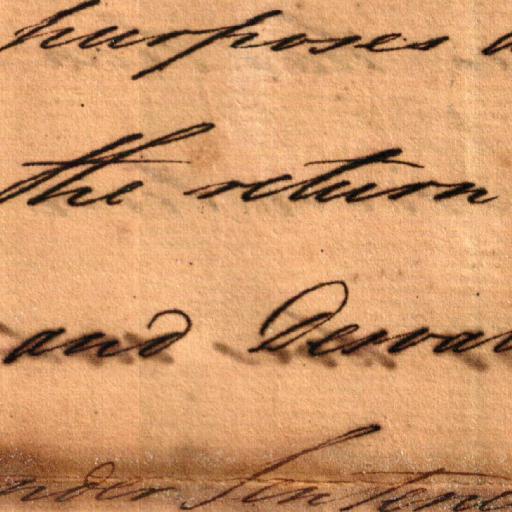 purposes
the return
and Servan
nder Sentenc